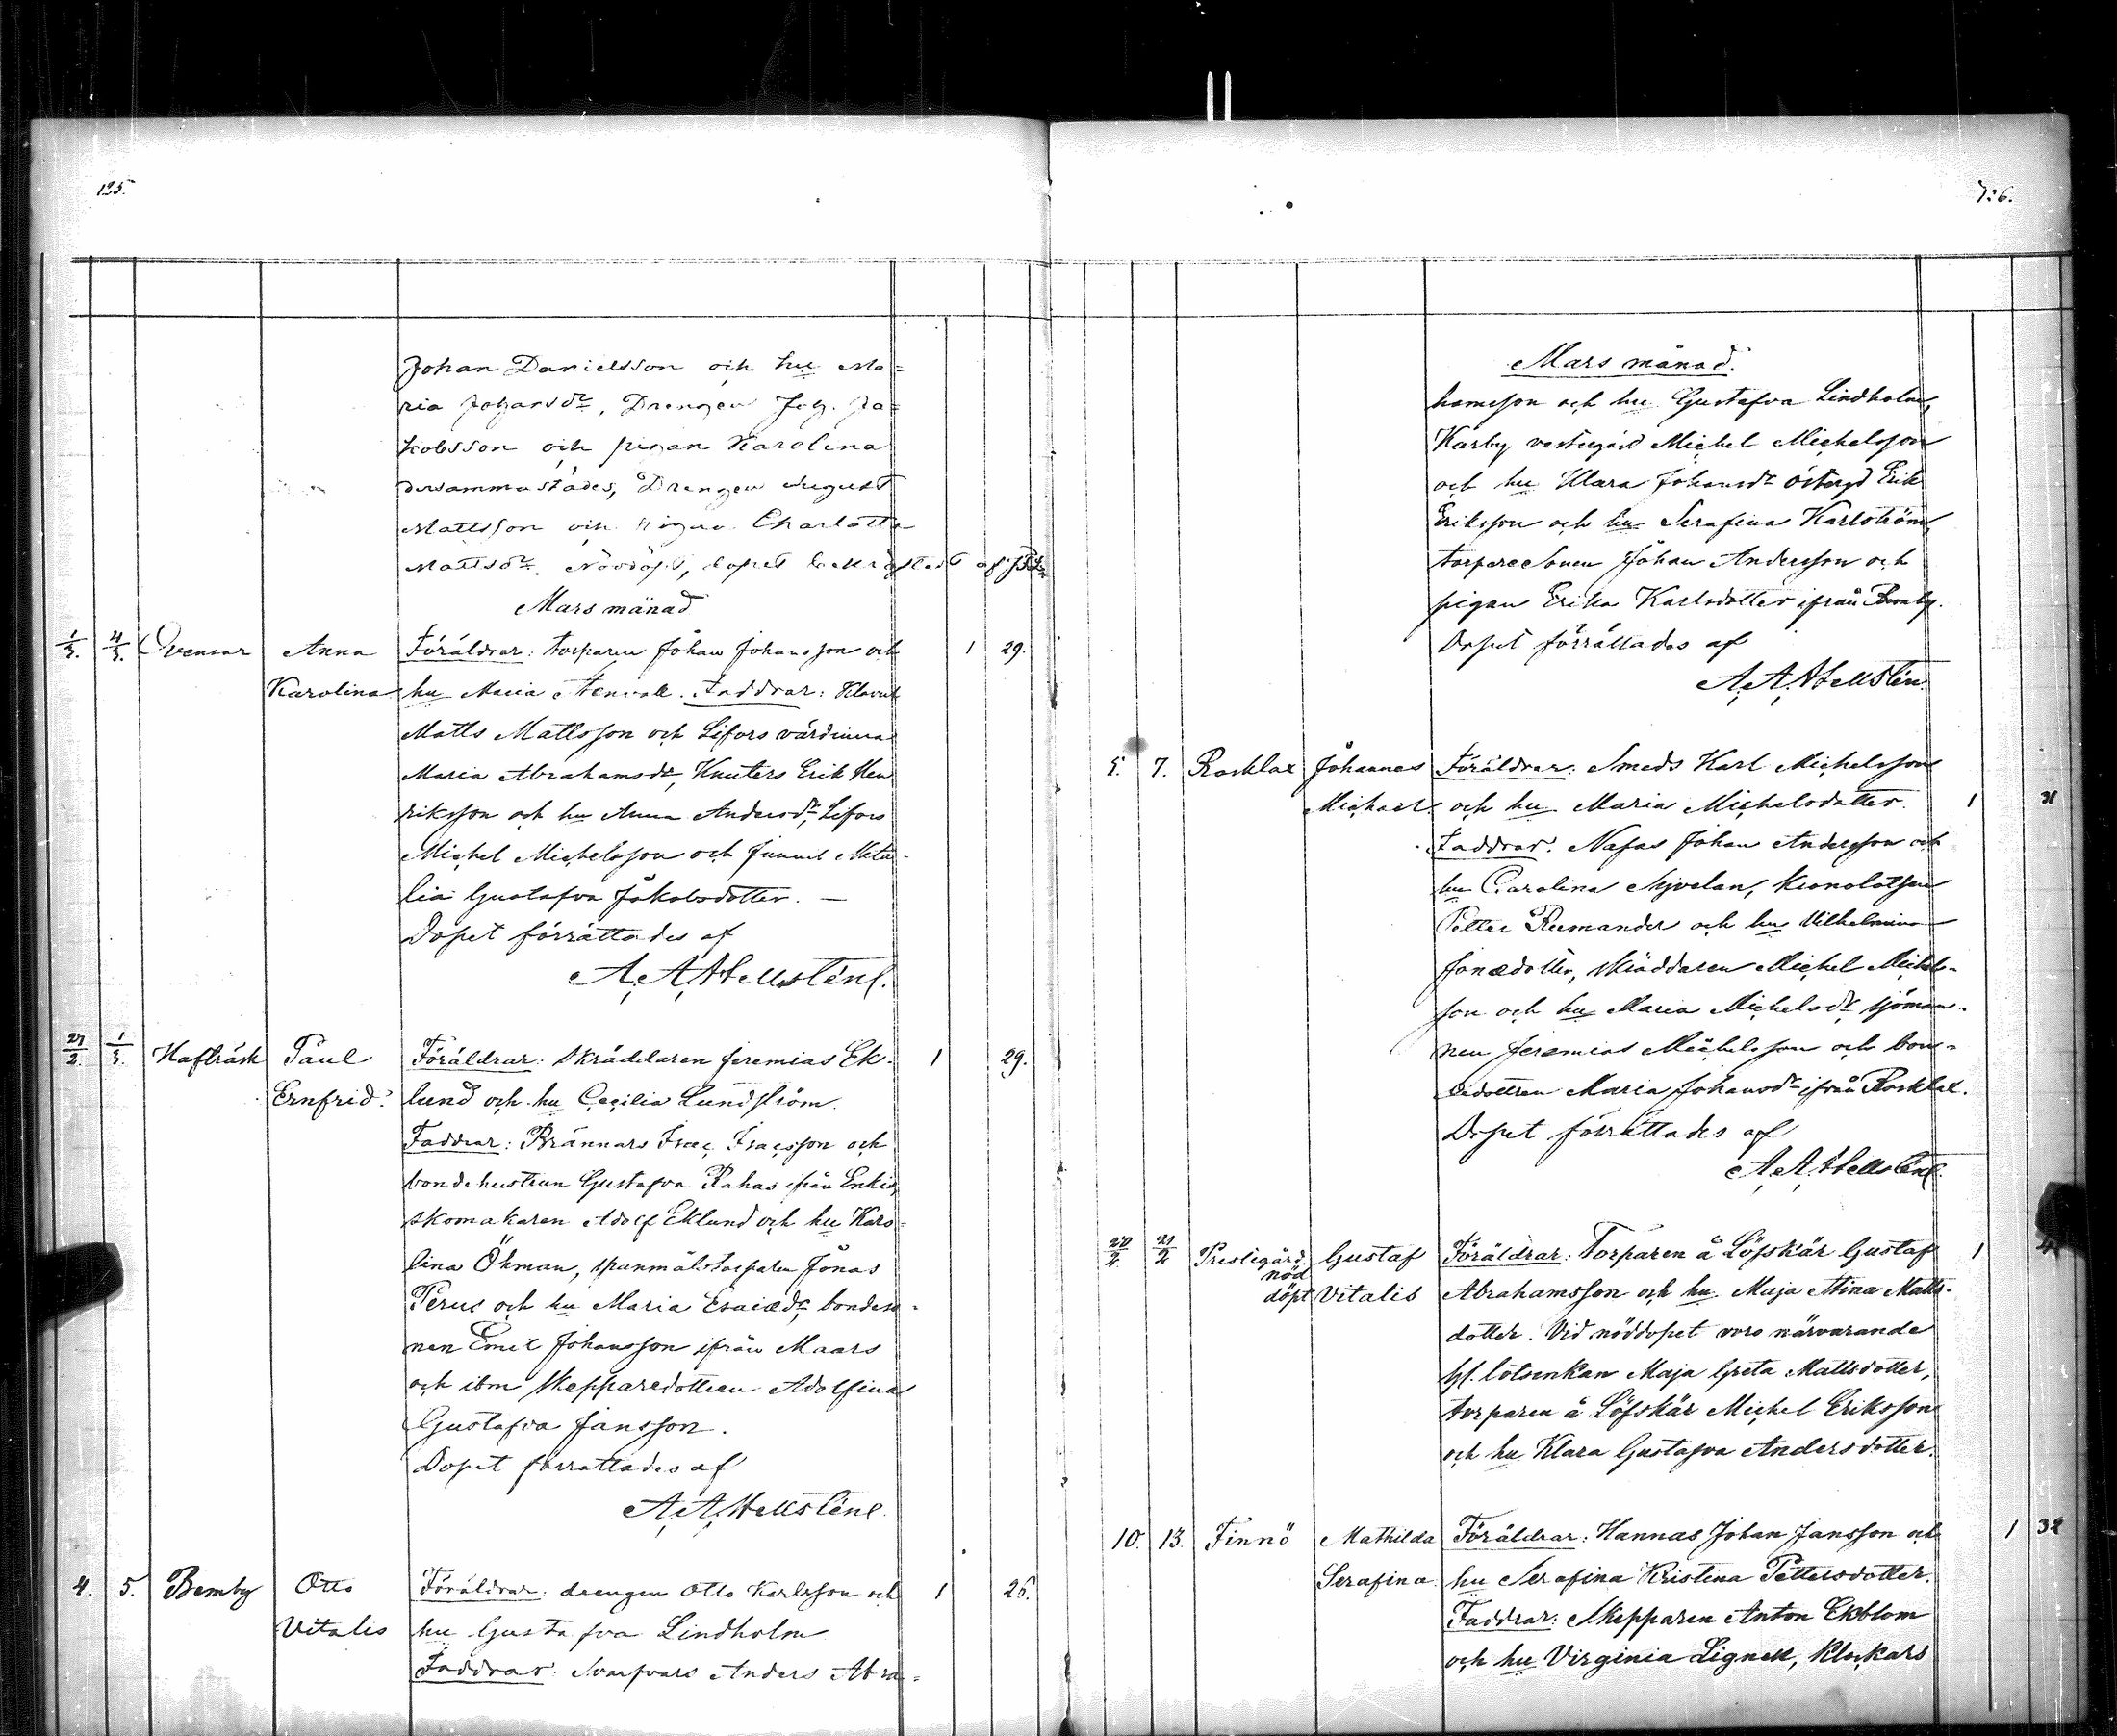 125.
Johan Danielsson och hu Ma=
ria Johansdr, Drengen Joh. Ja=
kobsson och pigan Karolina
dersammastädes, Drengen August
Mattsson och pigan Charlotta
Mattsdr. Nöddöpt, dopet bekräftadt af
Mars månad
1/3. 4/3. Anna Föräldrar: torparen Johan Johansson och 1 29.
Karolina hu Maria Stenvall. Faddrar:
Matts Mattsson och Lifors värdinna
Maria Abrahamsdr, Knuters Erik Hen
riksson och hu Anna Andersdr, Lifors
Michel Michelsson och
Gustafva Jakobsdotter. —
Dopet förrättades af
A. A. Hellstén.
27/2. 1/3. Hafträsk Paul Föräldrar: skräddaren Jeremias Ek- 1 29.
Ernfrid. lund och hu Cecilia Lundström.
Faddrar: Brännars Isac Isacsson och
bondehustrun Gustafva Rahas ifrån Enkis,
skomakaren Adolf Eklund och hu Karo=
lina Öhman, spanmålstorparen Jonas
Perus och hu Maria Esaiædr, bondeso-
nen Emil Johansson ifrån Maars
och ibm skepparedottren Adolfina
Gustafva Jansson.
Dopet förrättades af
A. A. Hellstén.
4. 5. Bemby Otto Föräldrar: drengen Otto Karlsson och 1 26.
Vitalis hu Gustafva Lindholm
Faddrar: Svarfvars Anders Abra=
126.
Mars månad.
hamsson och hu Gustafva Lindholm,
Karby vestergård Michel Michelsson
och hu Klara Johansdr östergd Erik
Eriksson och hu Serafina Karlström,
torparesonen Johan Andersson och
pigan Erika Karlsdotter ifrån Bemby.
Dopet förrättades af
A. A. Hellstén.
5. 7. Rosklax Johannes Föräldrar: Smeds Karl Michelsson
Michael och hu Maria Michelsdotter. 1 31
Faddrar: Nafas Johan Andersson och
hu Carolina Sjövelan, kronolotsen
Petter Reemander och hu Vilhelmina
Jonædotter, skräddaren Michel Michels-
son och hu Maria Michelsdr sjöman-
nen Jeremias Michelsson och bon-
dedottren Maria Johansdr ifrån Rosklax.
Dopet förrättades af
A. A. Hellstén.
20/2. 21/2 Prestegård. Gustaf Föräldrar: Torparen å Löfskär Gustaf 1
nöd
döpt Vitalis Abrahamsson och hu Maja Stina Matts-
dotter. Vid nöddopet voro närvarande
gl. lotsenkan Maja Greta Mattsdotter,
torparen å Löfskär Michel Eriksson
och hu Klara Gustafva Andersdotter.
10. 13. Finnö Mathilda Föräldrar: Hannas Johan Jansson och 1 32
Serafina hu Serafina Kristina Pettersdotter.
Faddrar: Skepparen Anton Ekblom
och hu Virginia Lignell, Klockars